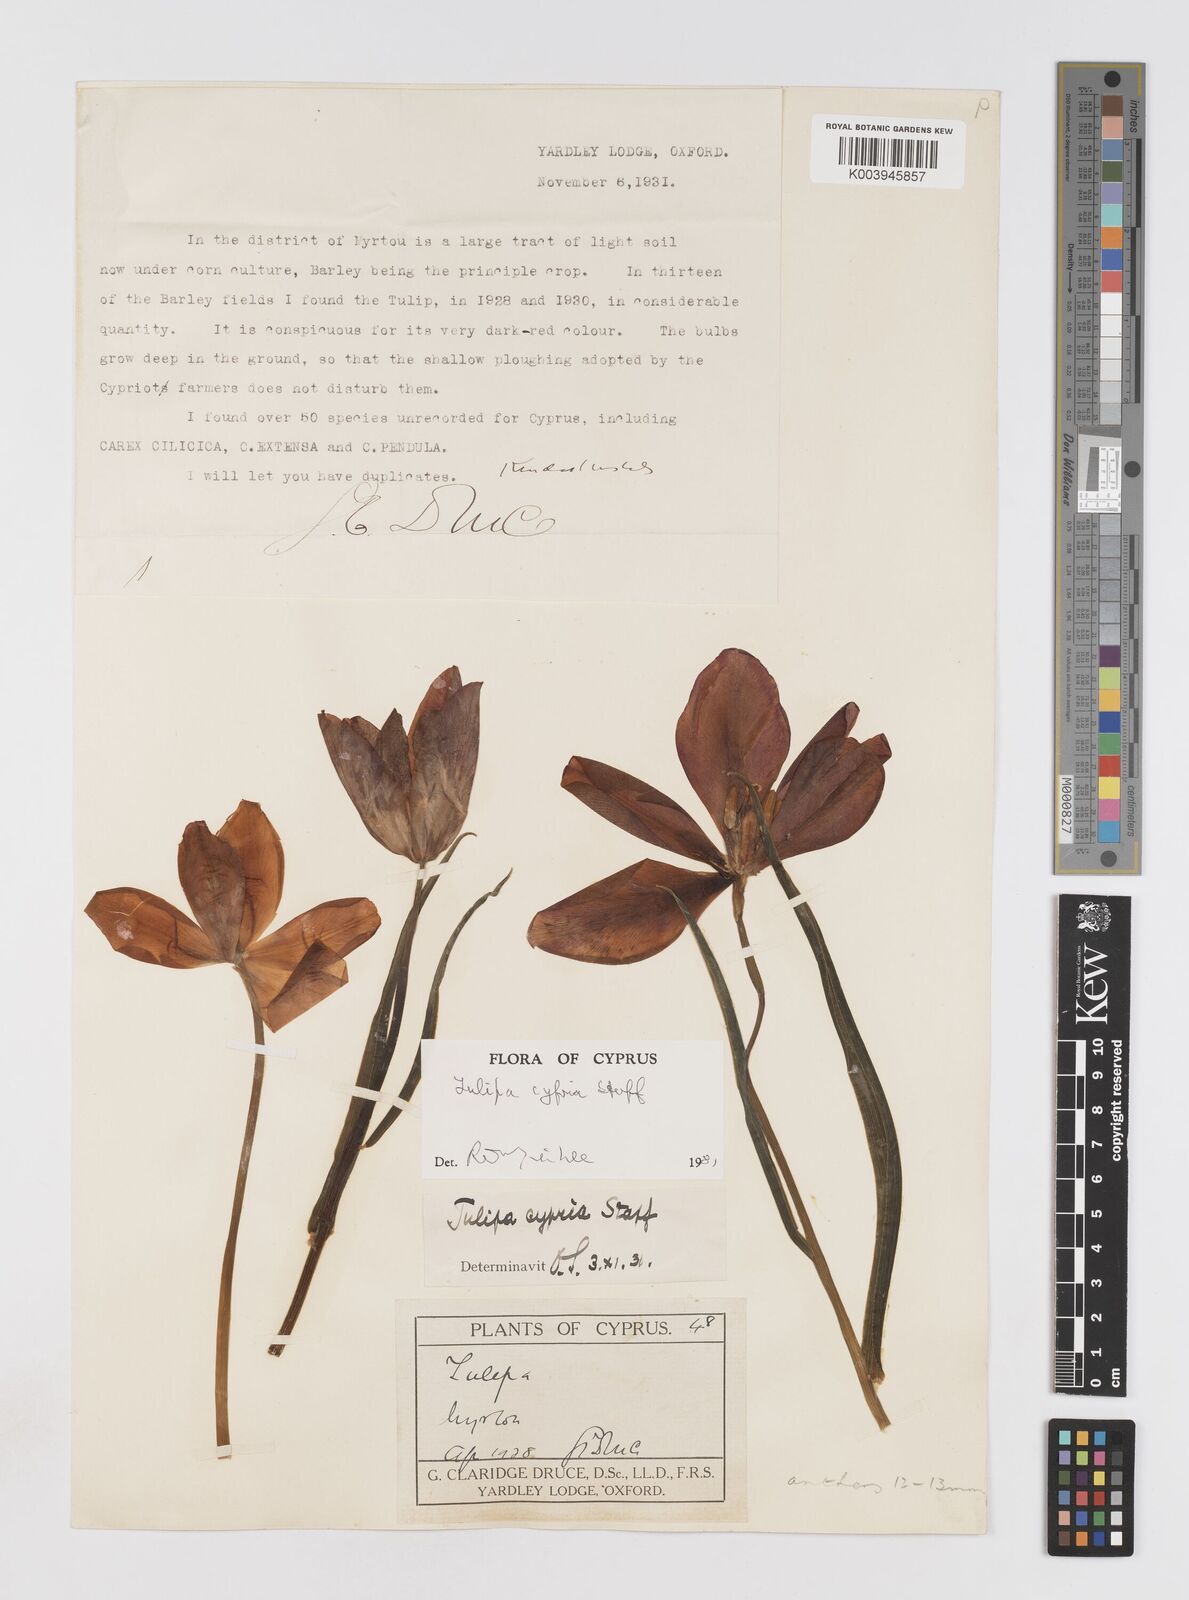 P
ROYAL BOTANIC GARDENS KEW
K003945857
YARDLEY LODGE, OXFORD.
November 6,1931.
In the district of Myrtou is a large tract of light soil
now under corn culture, Barley being the principle crop. In thirteen
of the Barley fields I found the Tulip, in 1928 and 1930, in considerable
quantity. It is conspicuous for its very dark-red colour. The bulbs
grow deep in the ground, so that the shallow ploughing adopted by the
Cypriot farmers does not disturb them.
I found over 50 species unrecorded for Cyprus, including
CAREX CILICICA, C.EXTENSA and C.PENDULA.
I will let you have duplicates.
G. C. Druce
FLORA OF CYPRUS
Tulipa cypria Stapf
Det. 19
Tulipa cypria Stapf
Determinavit O.S. 3.XI.31.
PLANTS OF CYPRUS. 48
Tulipa
Myrtou
Ap 1928 G C Druce
G. CLARIDGE DRUCE, D.Sc., LL.D., F.R.S.
YARDLEY LODGE, OXFORD.
anthers 12-13mm
inches
centimeters
Don Williams
M000827
Royal Botanic Gardens
Kew
copyright reserved
0 1 2 3 4 5 6 7 8 9 10
cm